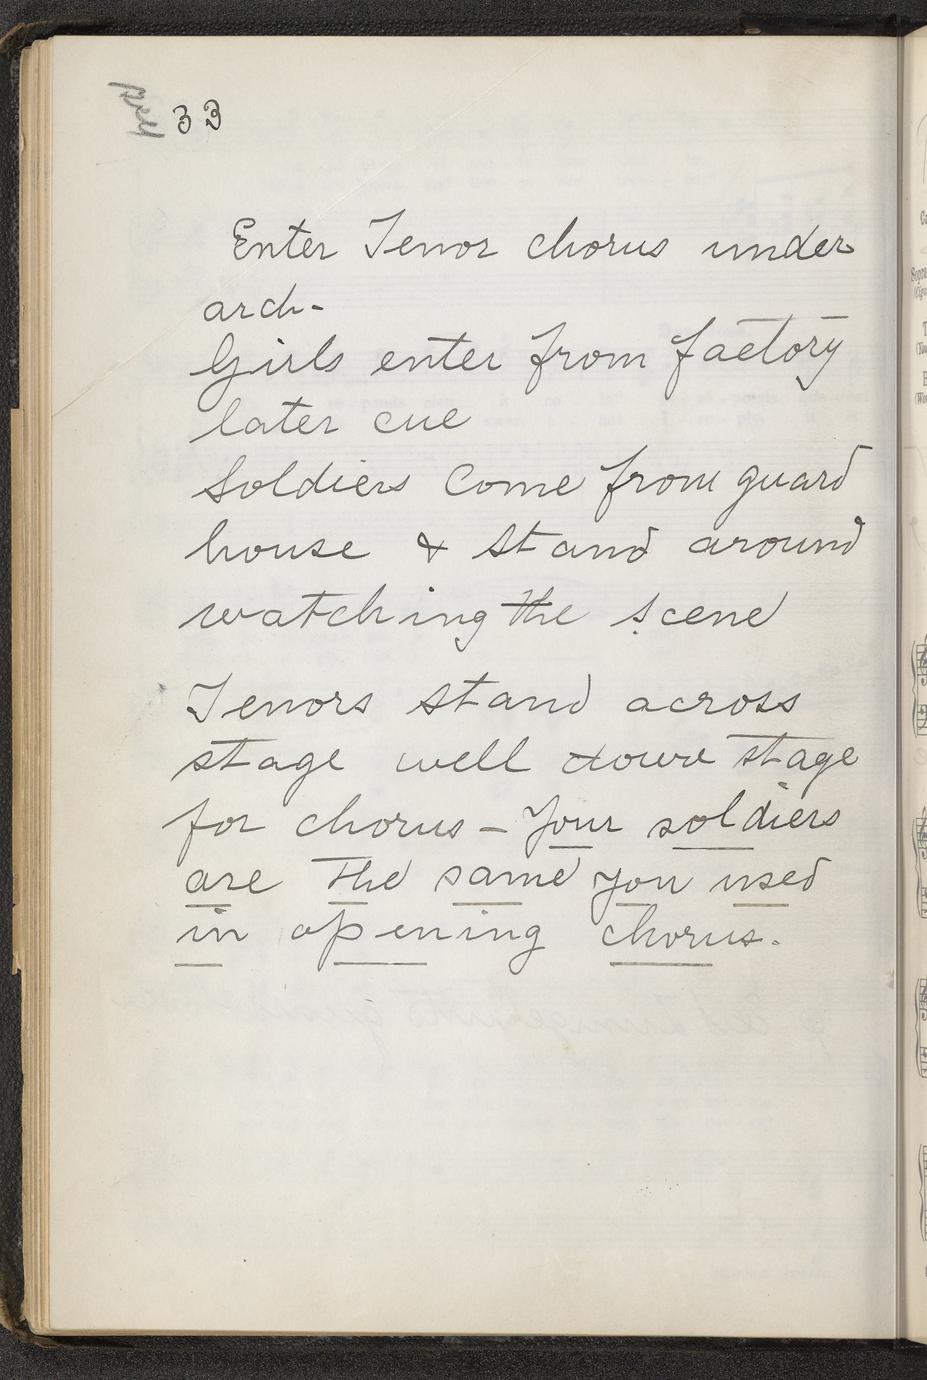 33
Enter Tenor chorus under
arch-
Girls enter from factory
later cue
Soldiers Come from guard
house & stand around
watching the scene
Tenors stand across
stage well down stage
for chorus - Your soldiers
are the same you used
in opening chorus.